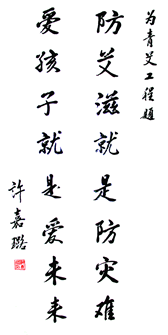 为青艾工程题
防艾滋就是防灾难
愛孩子就是愛未来
許嘉璐